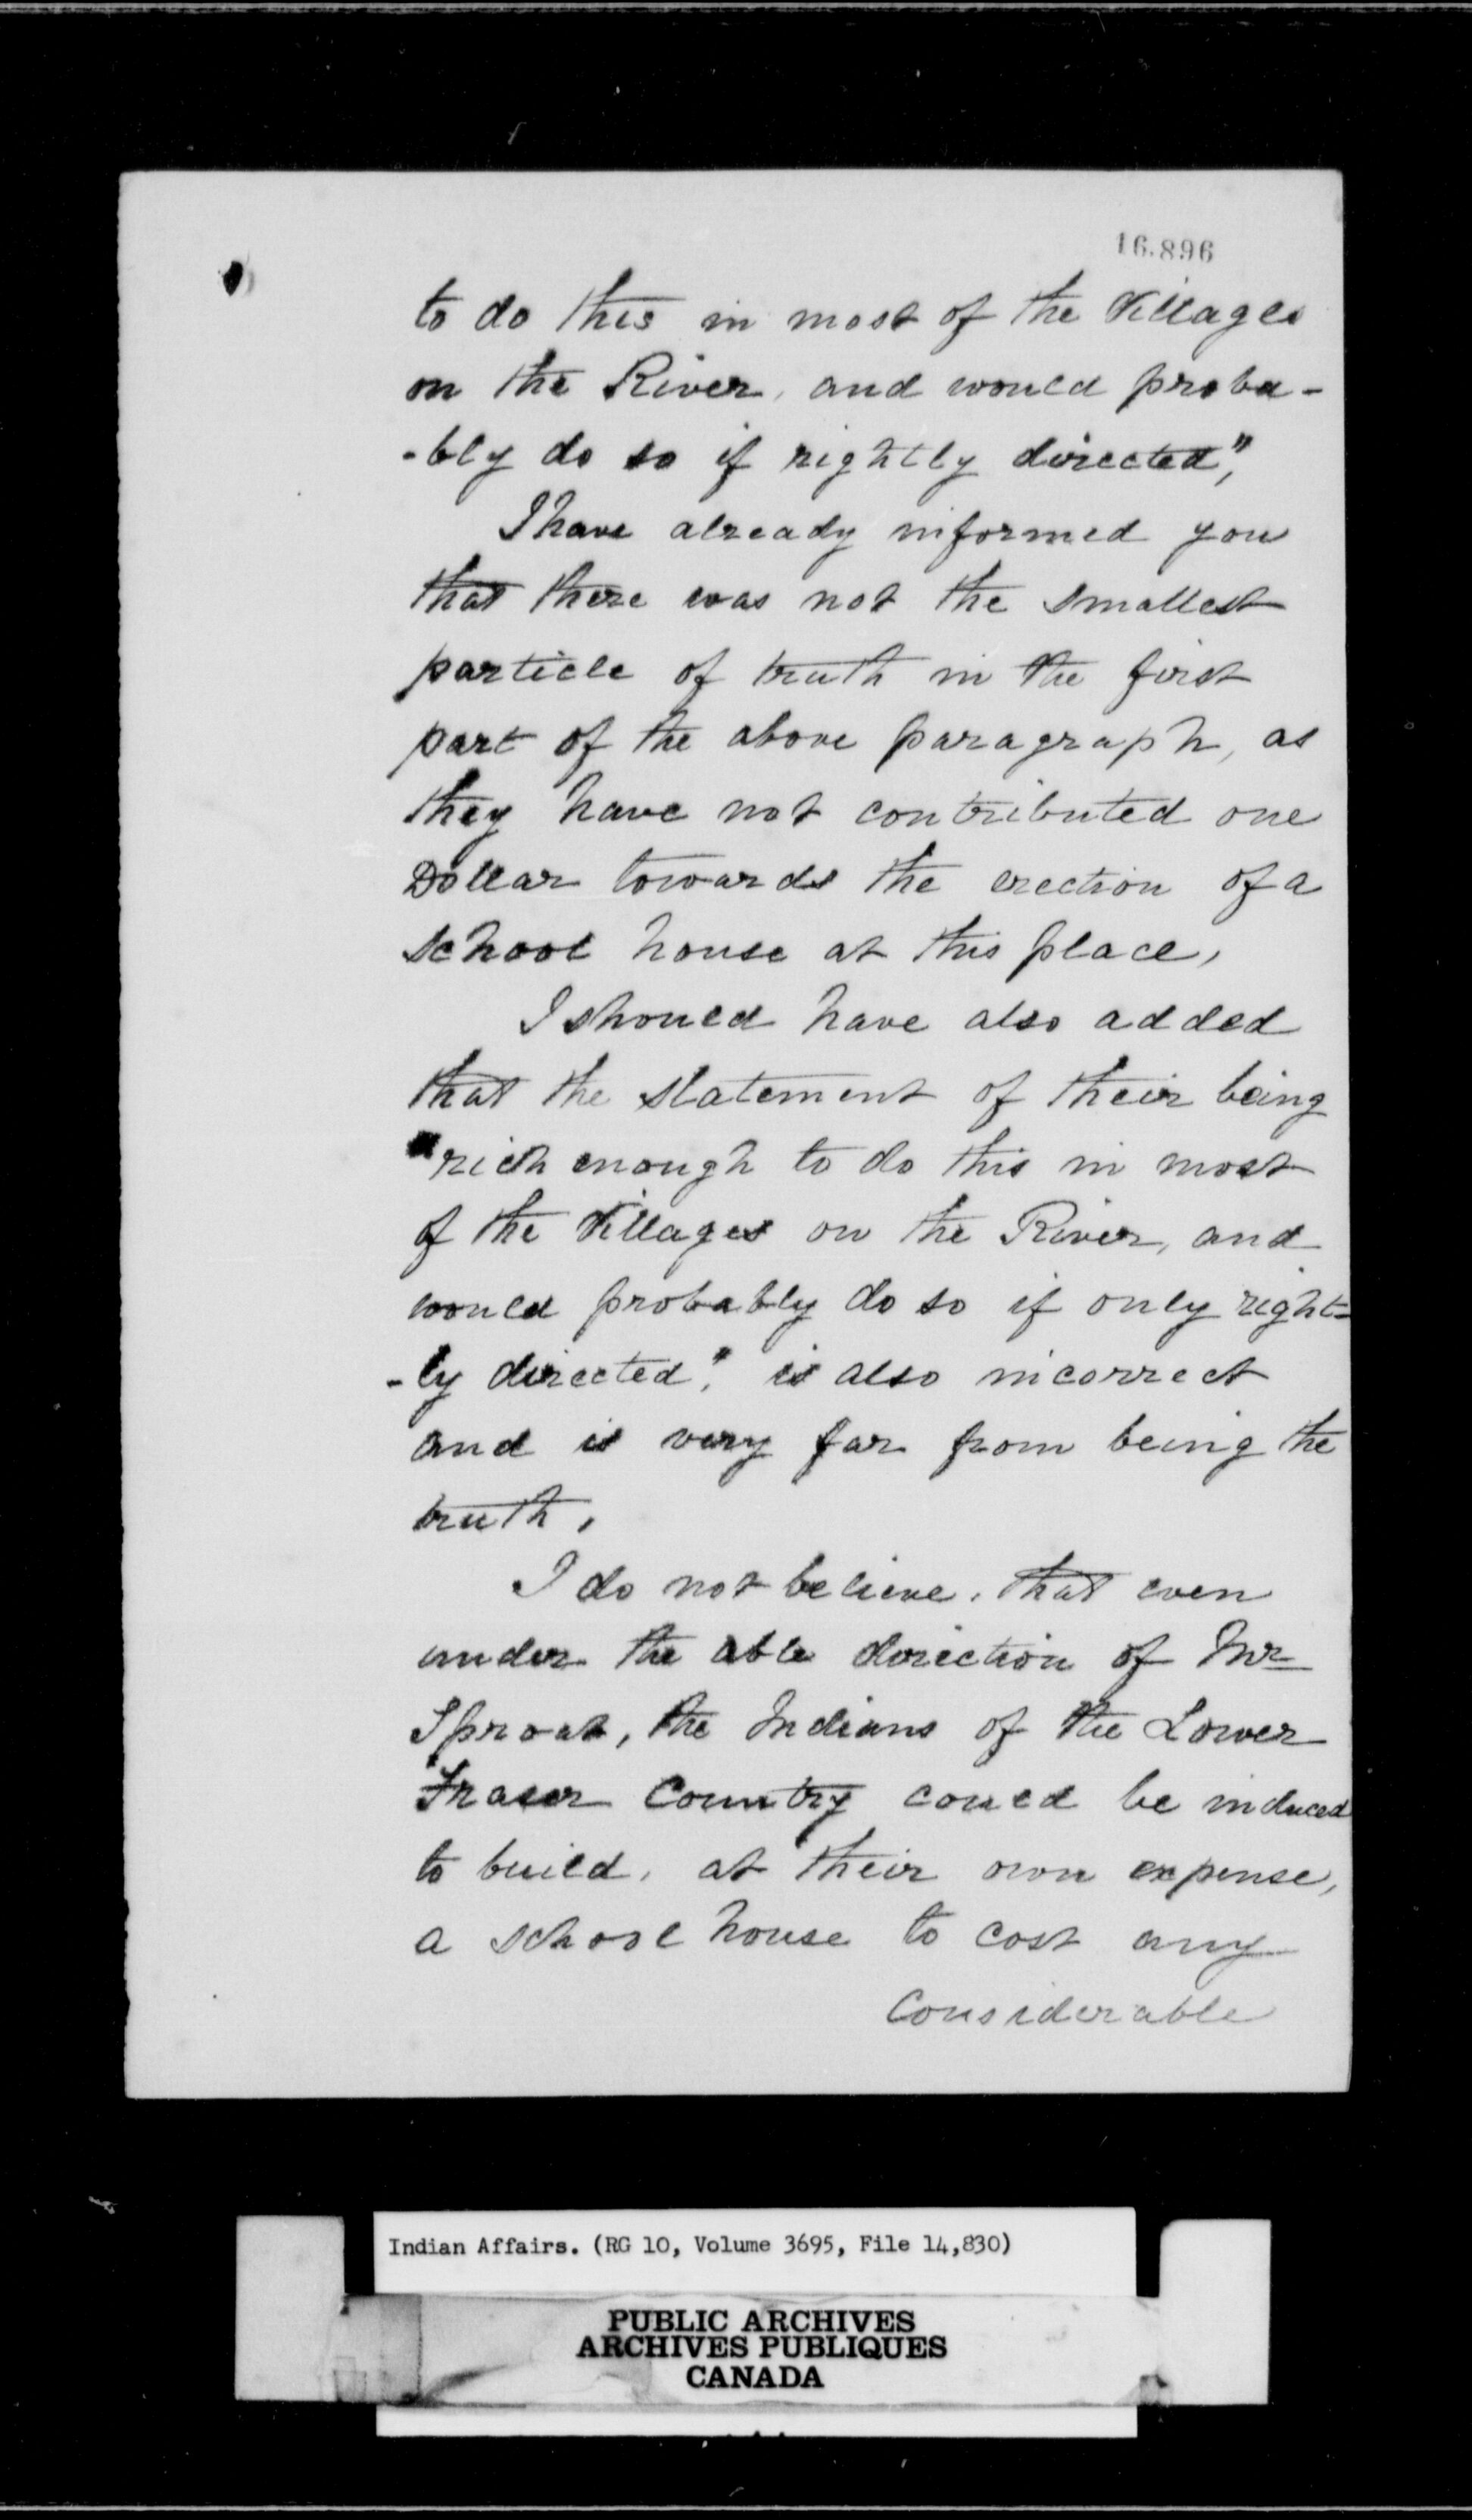 16.896
to do this in most of the Villages
on the River, and would proba-
-bly do so if rightly directed",
I have already informed you
that there was not the smallest
particle of truth in the first
part of the above paragraph, as
they have not contributed one
Dollar towards the erection of a
school house at this place,
I should have also added
that the statement of their being
"rich enough to do this in most
of the Villages on the River, and
would probably do so if only right-
-ly directed". is also incorrect
and is very far from being the
truth,
I do not believe, that even
under the able direction of Mr
Sproat, the Indians of the Lower
Fraser Country could be induced
to build, at their own expense,
a school house to cost any
Considerable
Indian Affairs. (RG 10, Volume 3695, File 14,830)
PUBLIC ARCHIVES
ARCHIVES PUBLIQUES
CANADA